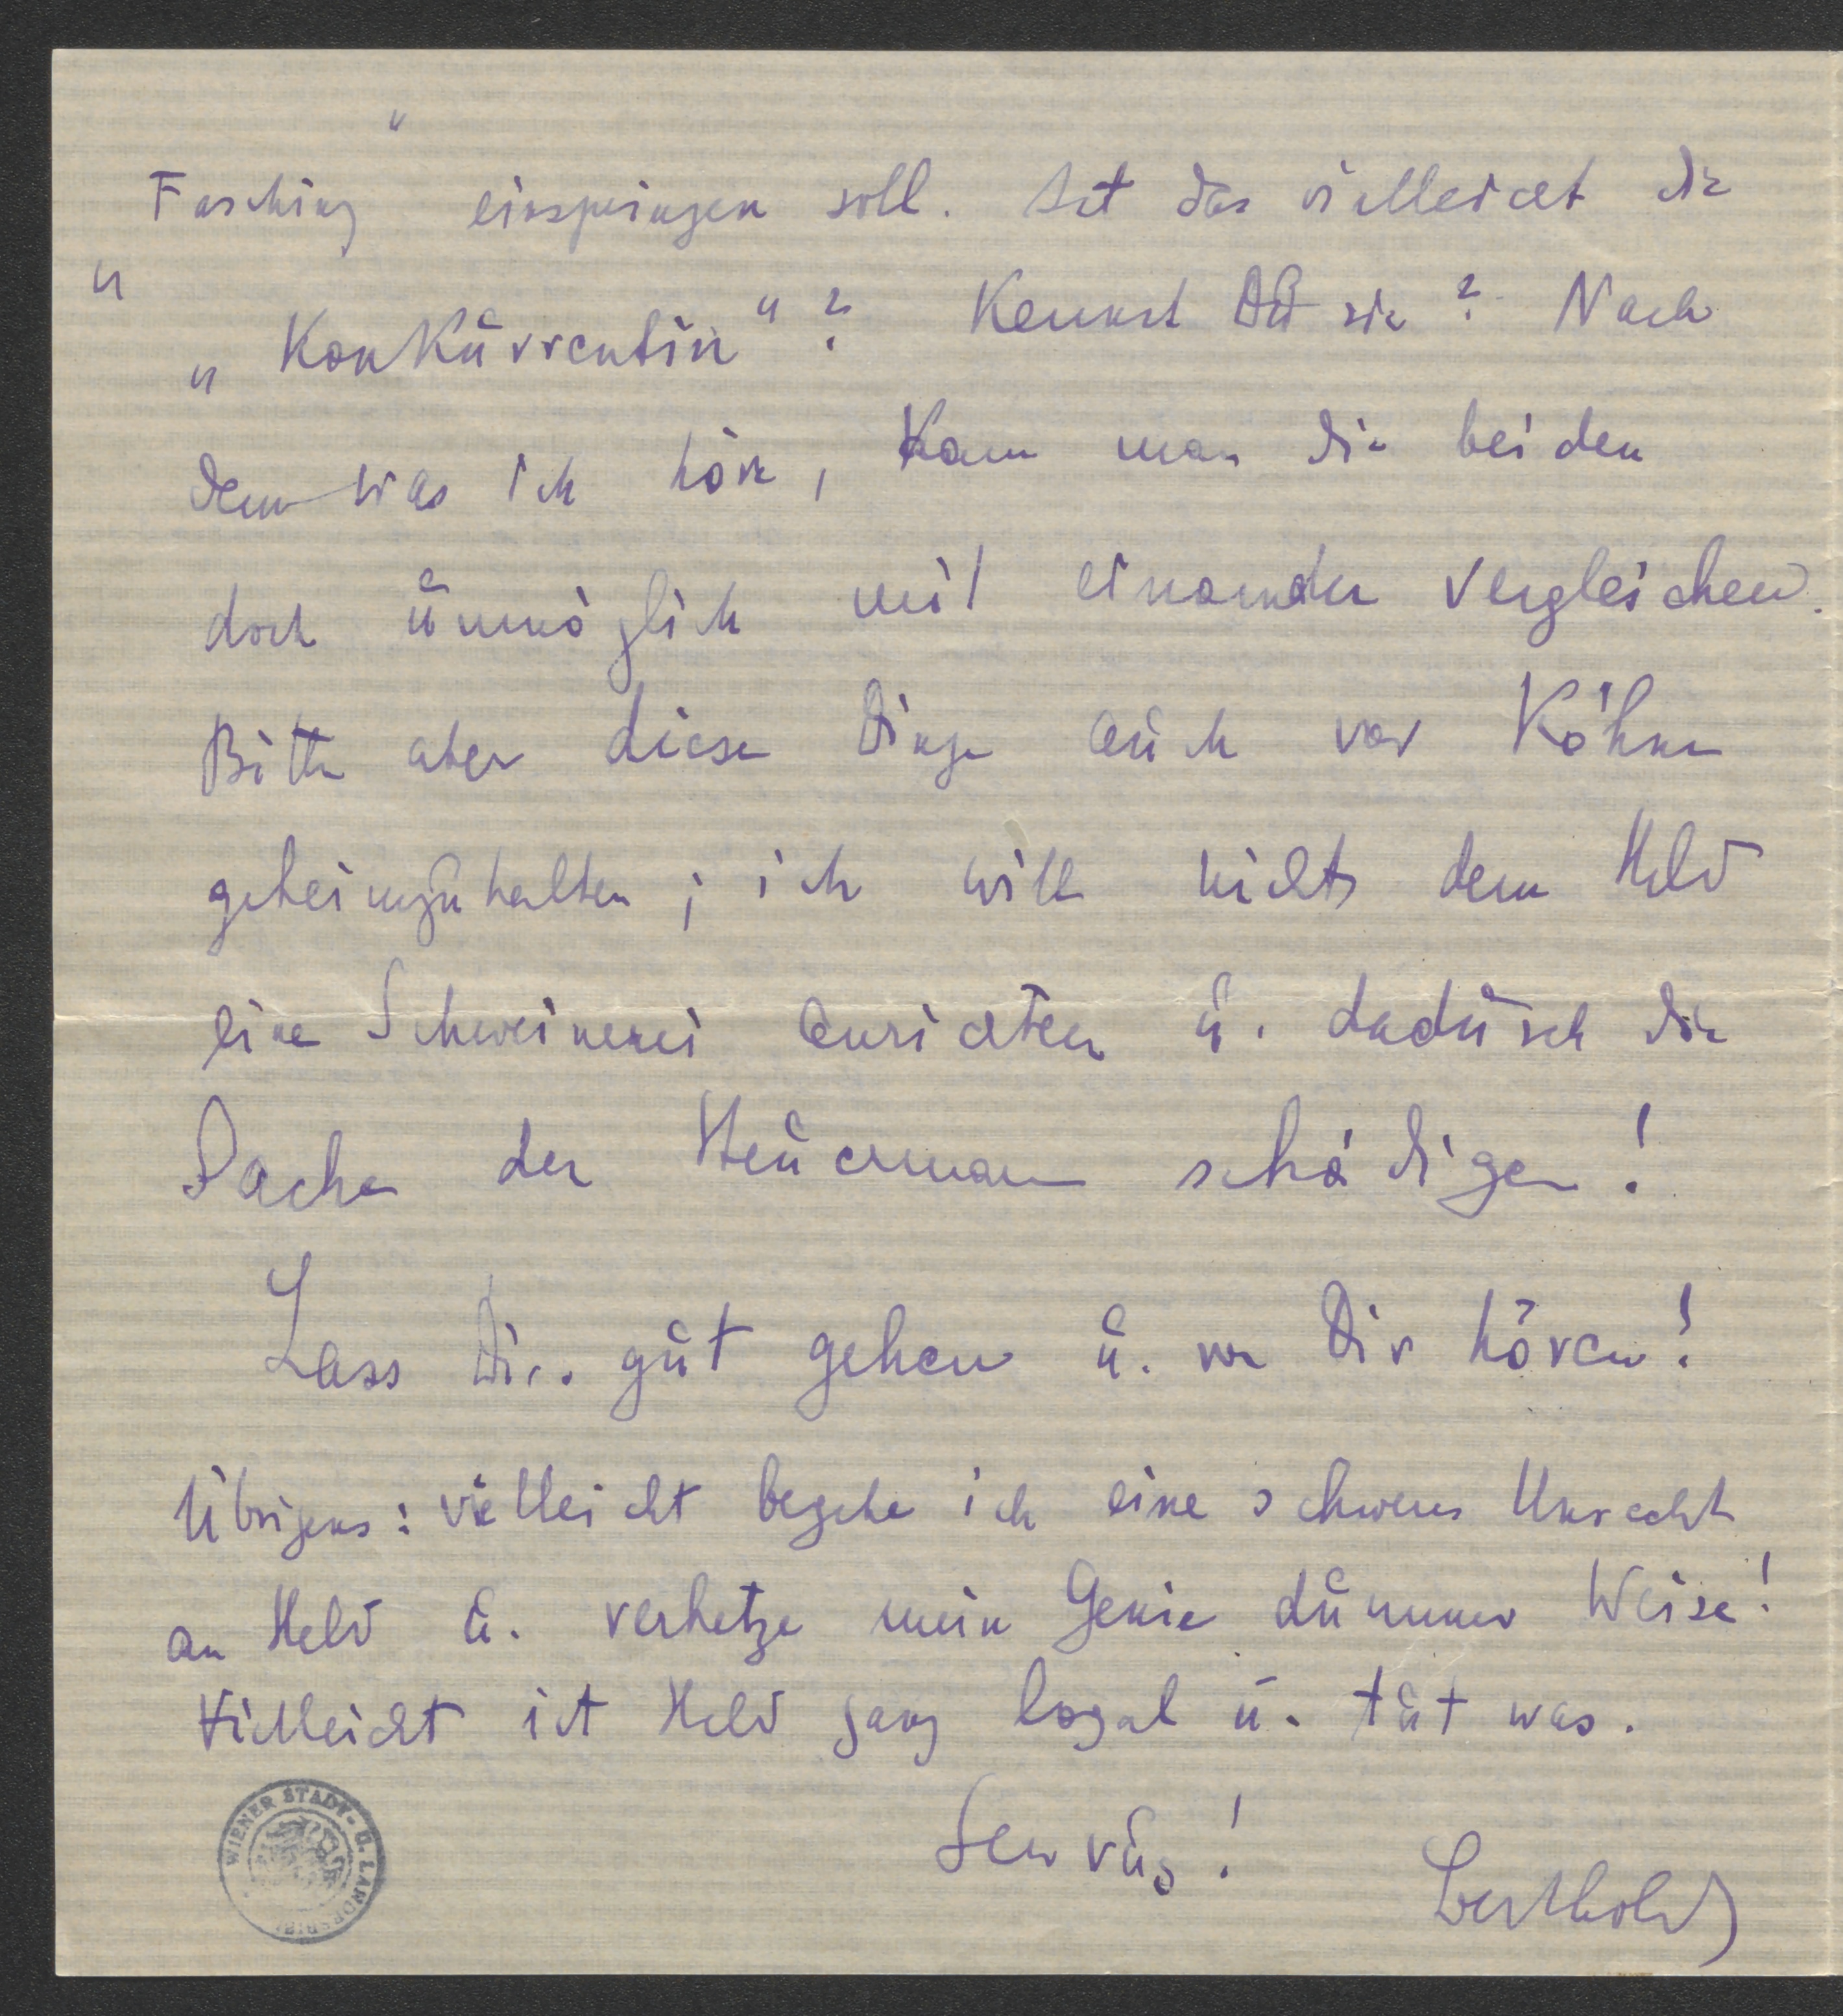 Fasching" einspringen soll. Ist das vielleicht die
„Konkurrentin"? Kennst Du sie? Nach
dem was ich höre, kann man die beiden
doch unmöglich mit einander vergleichen.
Bitte aber diese Dinge auch vor Köhne
geheimzuhalten; ich will nichts dem Held
eine Schweinerei anrichten u. dadurch die
Sache der Steuermann schädigen!
Lass Dirs gut gehen u. von Dir hören!
Übrigens: vielleicht begehe ich eine schweres Unrecht
an Held u. verhetze mein Genie dummer Weise!
Vielleicht ist Held ganz loyal u. tut was.
Servus!
Berthold
WIENER STADT- U. LANDESBIBL